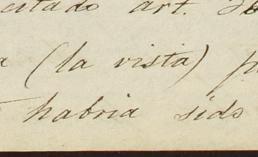 citado art.
(la vista)
habria sido